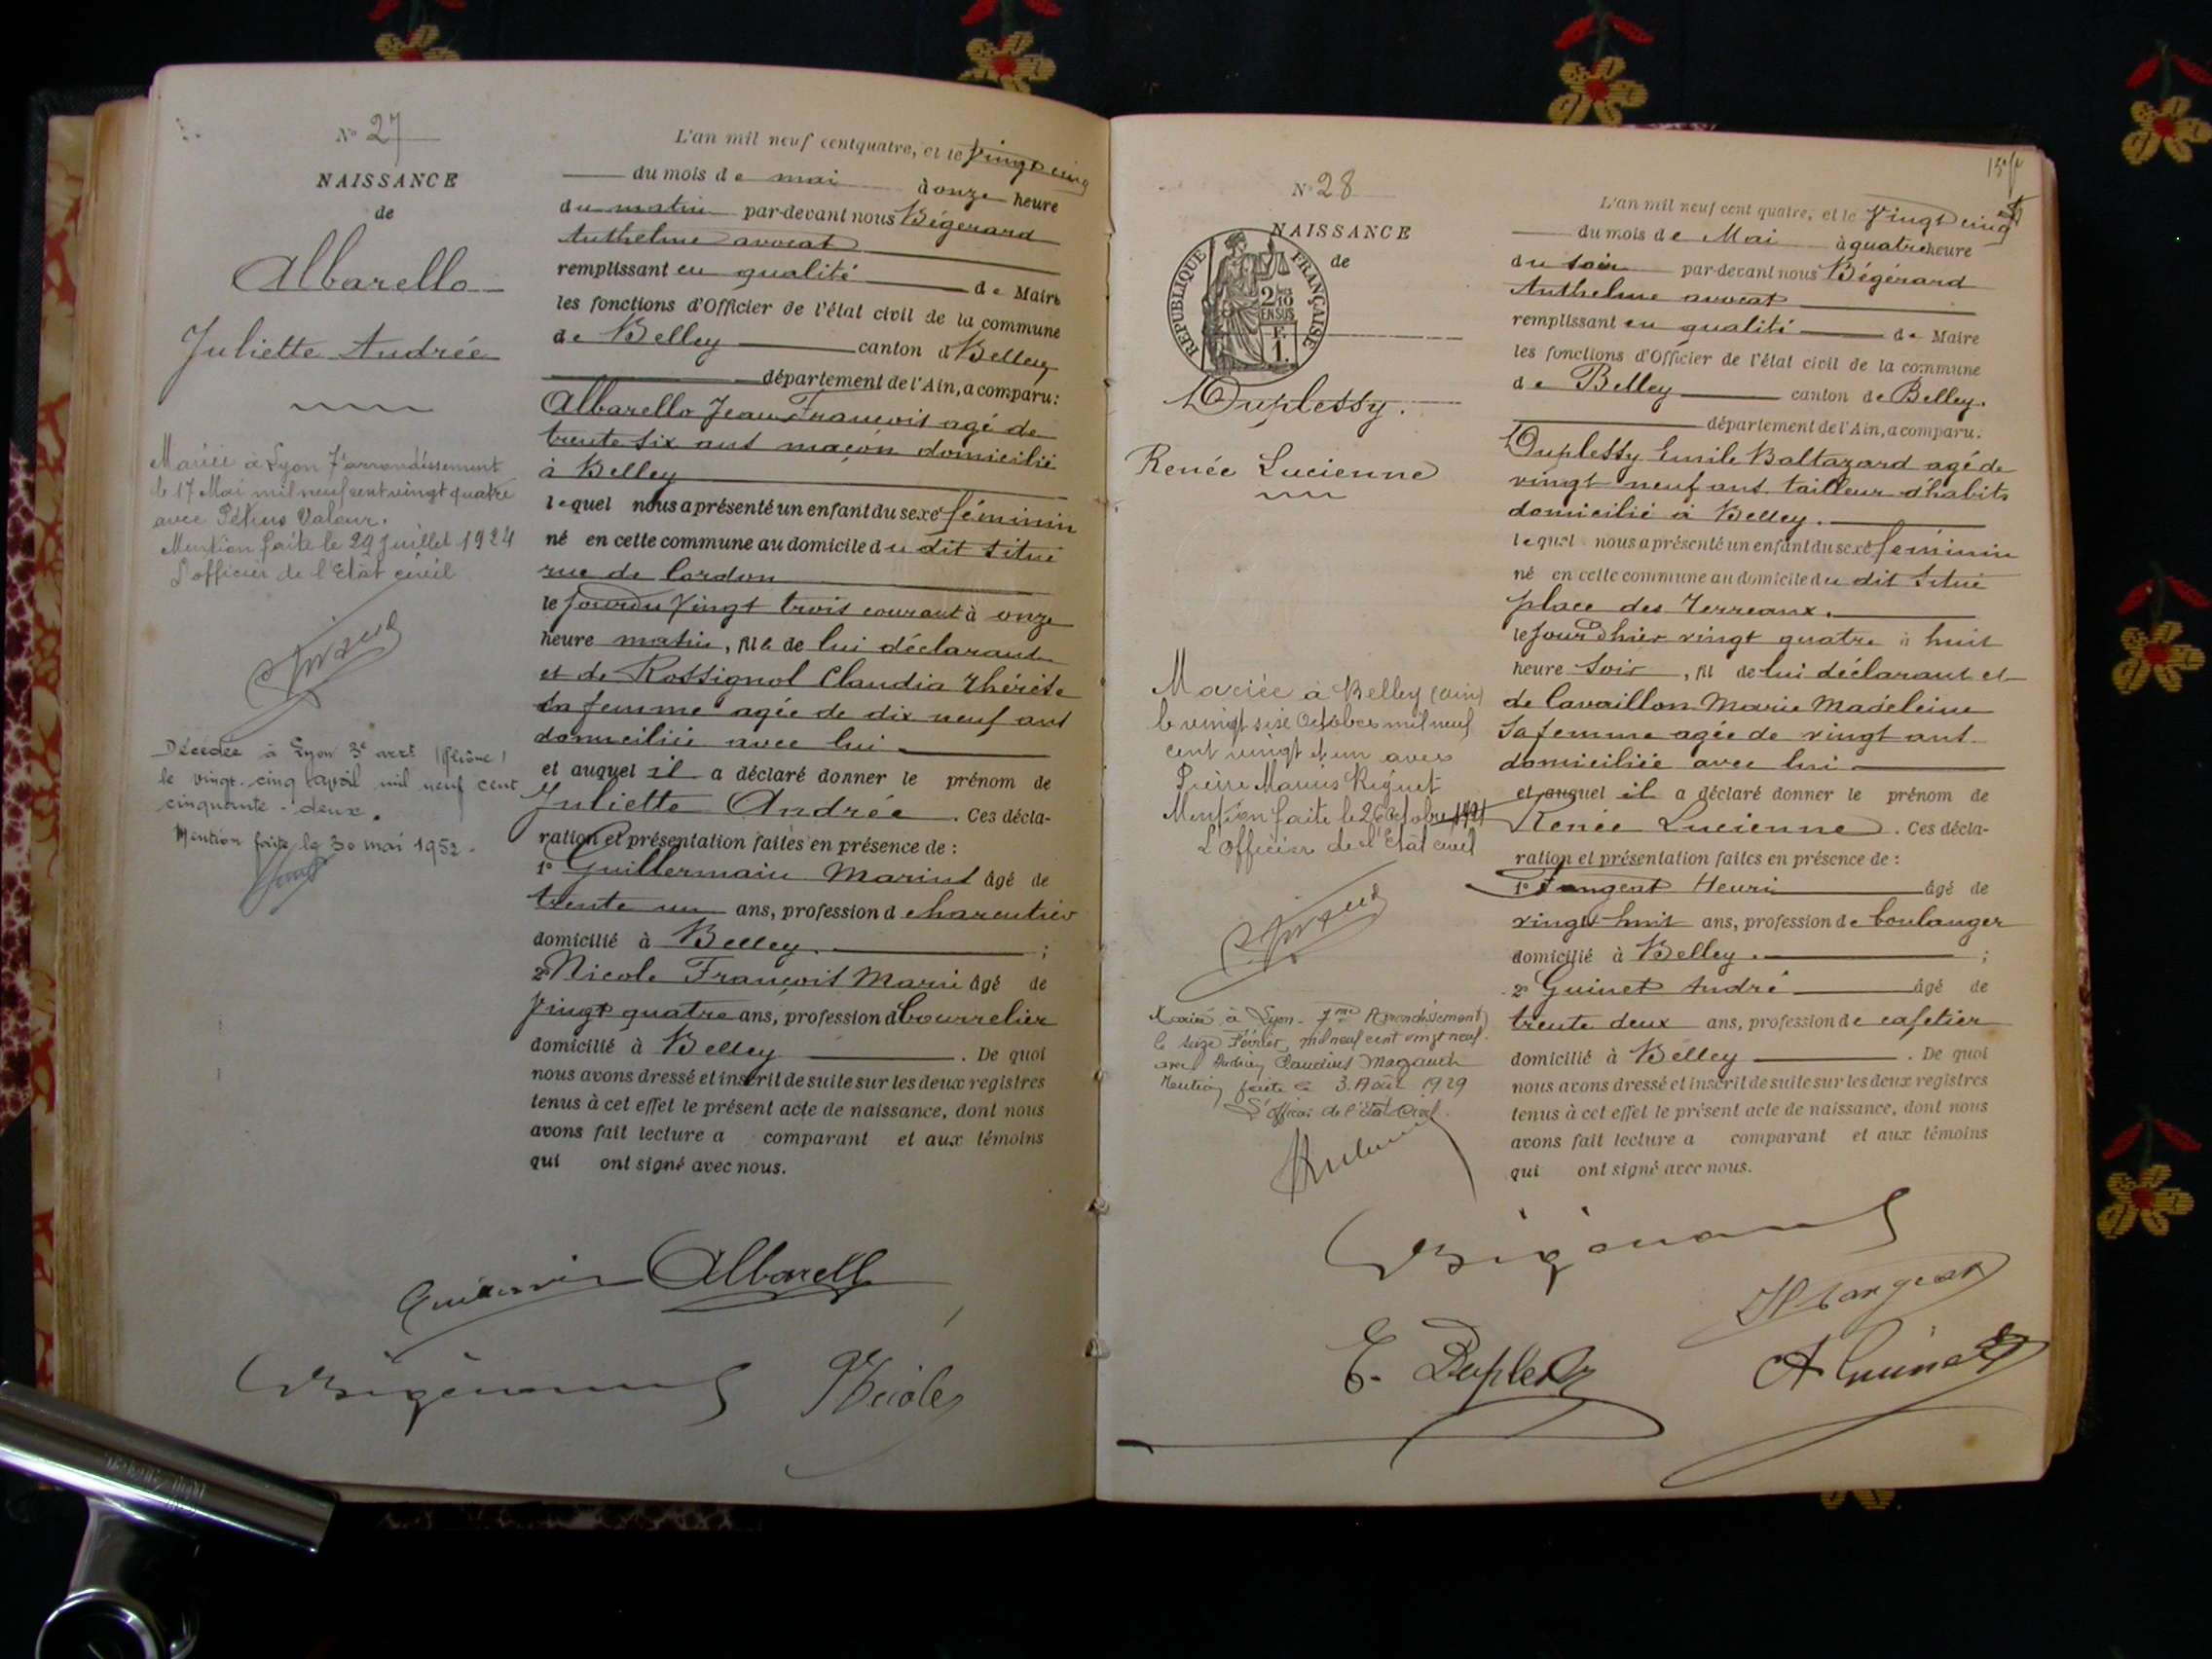 N° 27
NAISSANCE
de
Albarello
Juliette Andrée
Mariée à Lyon 7e arrondissement
le 17 Mai mil neuf cent vingt quatre
avec Pétrus Valour.
Mention faite le 29 Juillet 1924
L'officier de l'Etat civil
Décédée à Lyon 3e arrt (Rhône)
le vingt-cinq avril mil neuf cent
cinquante-deux.
Mention faite le 30 mai 1952.
L'an mil neuf cent quatre, et le vingt cinq
du mois de mai à onze heure
du matin par-devant nous Bégerard
Anthelme avocat
remplissant en qualité de Maire
les fonctions d'Officier de l'état civil de la commune
de Belley canton d Belley
département de l'Ain, a comparu:
Albarello Jean François agé de
trente six ans maçon domicilié
à Belley
lequel nous a présenté un enfant du sexe féminin
né en cette commune au domicile du dit situé
rue de Cordon
le jourdu vingt trois courant à onze
heure matin, fille de lui déclarant
et de Rossignol Claudia Thérèse
sa femme agée de dix neuf ans
domiciliée avec lui
et auquel il a déclaré donner le prénom de
Juliette Andrée. Ces décla-
ration et présentation faites en présence de:
1° Guillermain Marius âgé de
trente un ans, profession d charcutier
domicilié à Belley. ;
2° Nicole François Marie âgé de
vingt quatre ans, profession d bourrelier
domicilié à Belley. De quoi
nous avons dressé et inscrit de suite sur les deux registres
tenus à cet effet le présent acte de naissance, dont nous
avons fait lecture a comparant et aux témoins
qui ont signé avec nous.
Albarello
Bégerard Nicole
N° 28
NAISSANCE
de
RÉPUBLIQUE FRANÇAISE
2/10
EN SUS
F.
1.
Duplessy.
Renée Lucienne
Mariée à Belley (Ain)
le vingt six Octobre mil neuf
cent vingt et un avec
Pierre Marius Riguet
Mention faite le 26 Octobre 1921
L'Officier de l'Etat civil
Mariée à Lyon - 7me Arrondissement
le seize Février, mil neuf cent vingt neuf.
avec Claudius
Mention faite le 3. Août 1929
L'officier de l'Etat Civil.
L'an mil neuf cent quatre, et le vingt cinq
du mois de Mai à quatre heure
du soir par-devant nous Bégérard
Anthelme avocat
remplissant en qualité de Maire
les fonctions d'Officier de l'état civil de la commune
de Belley canton de Belley.
département de l'Ain, a comparu:
Duplessy Emile Baltazard agé de
vingt neuf ans tailleur d'habits
domicilié à Belley.
lequel nous a présenté un enfant du sexe féminin
né en cette commune au domicile du dit situé
place des Terreaux.
le jour d'hier vingt quatre à huit
heure soir, fil de lui déclarant et
de Cavaillon Marie Madeleine
sa femme agée de vingt ans
domiciliée avec lui
et auquel il a déclaré donner le prénom de
Renée Lucienne. Ces décla-
ration et présentation faites en présence de:
1° Tangeat Henri âgé de
vingt huit ans, profession de boulanger
domicilié à Belley. ;
2° Guinet André âgé de
trente deux ans, profession de cafetier
domicilié à Belley. De quoi
nous avons dressé et inscrit de suite sur les deux registres
tenus à cet effet le présent acte de naissance, dont nous
avons fait lecture a comparant et aux témoins
qui ont signé avec nous.
Bégerard
H Tangeat
E. Duplessy A Guinet